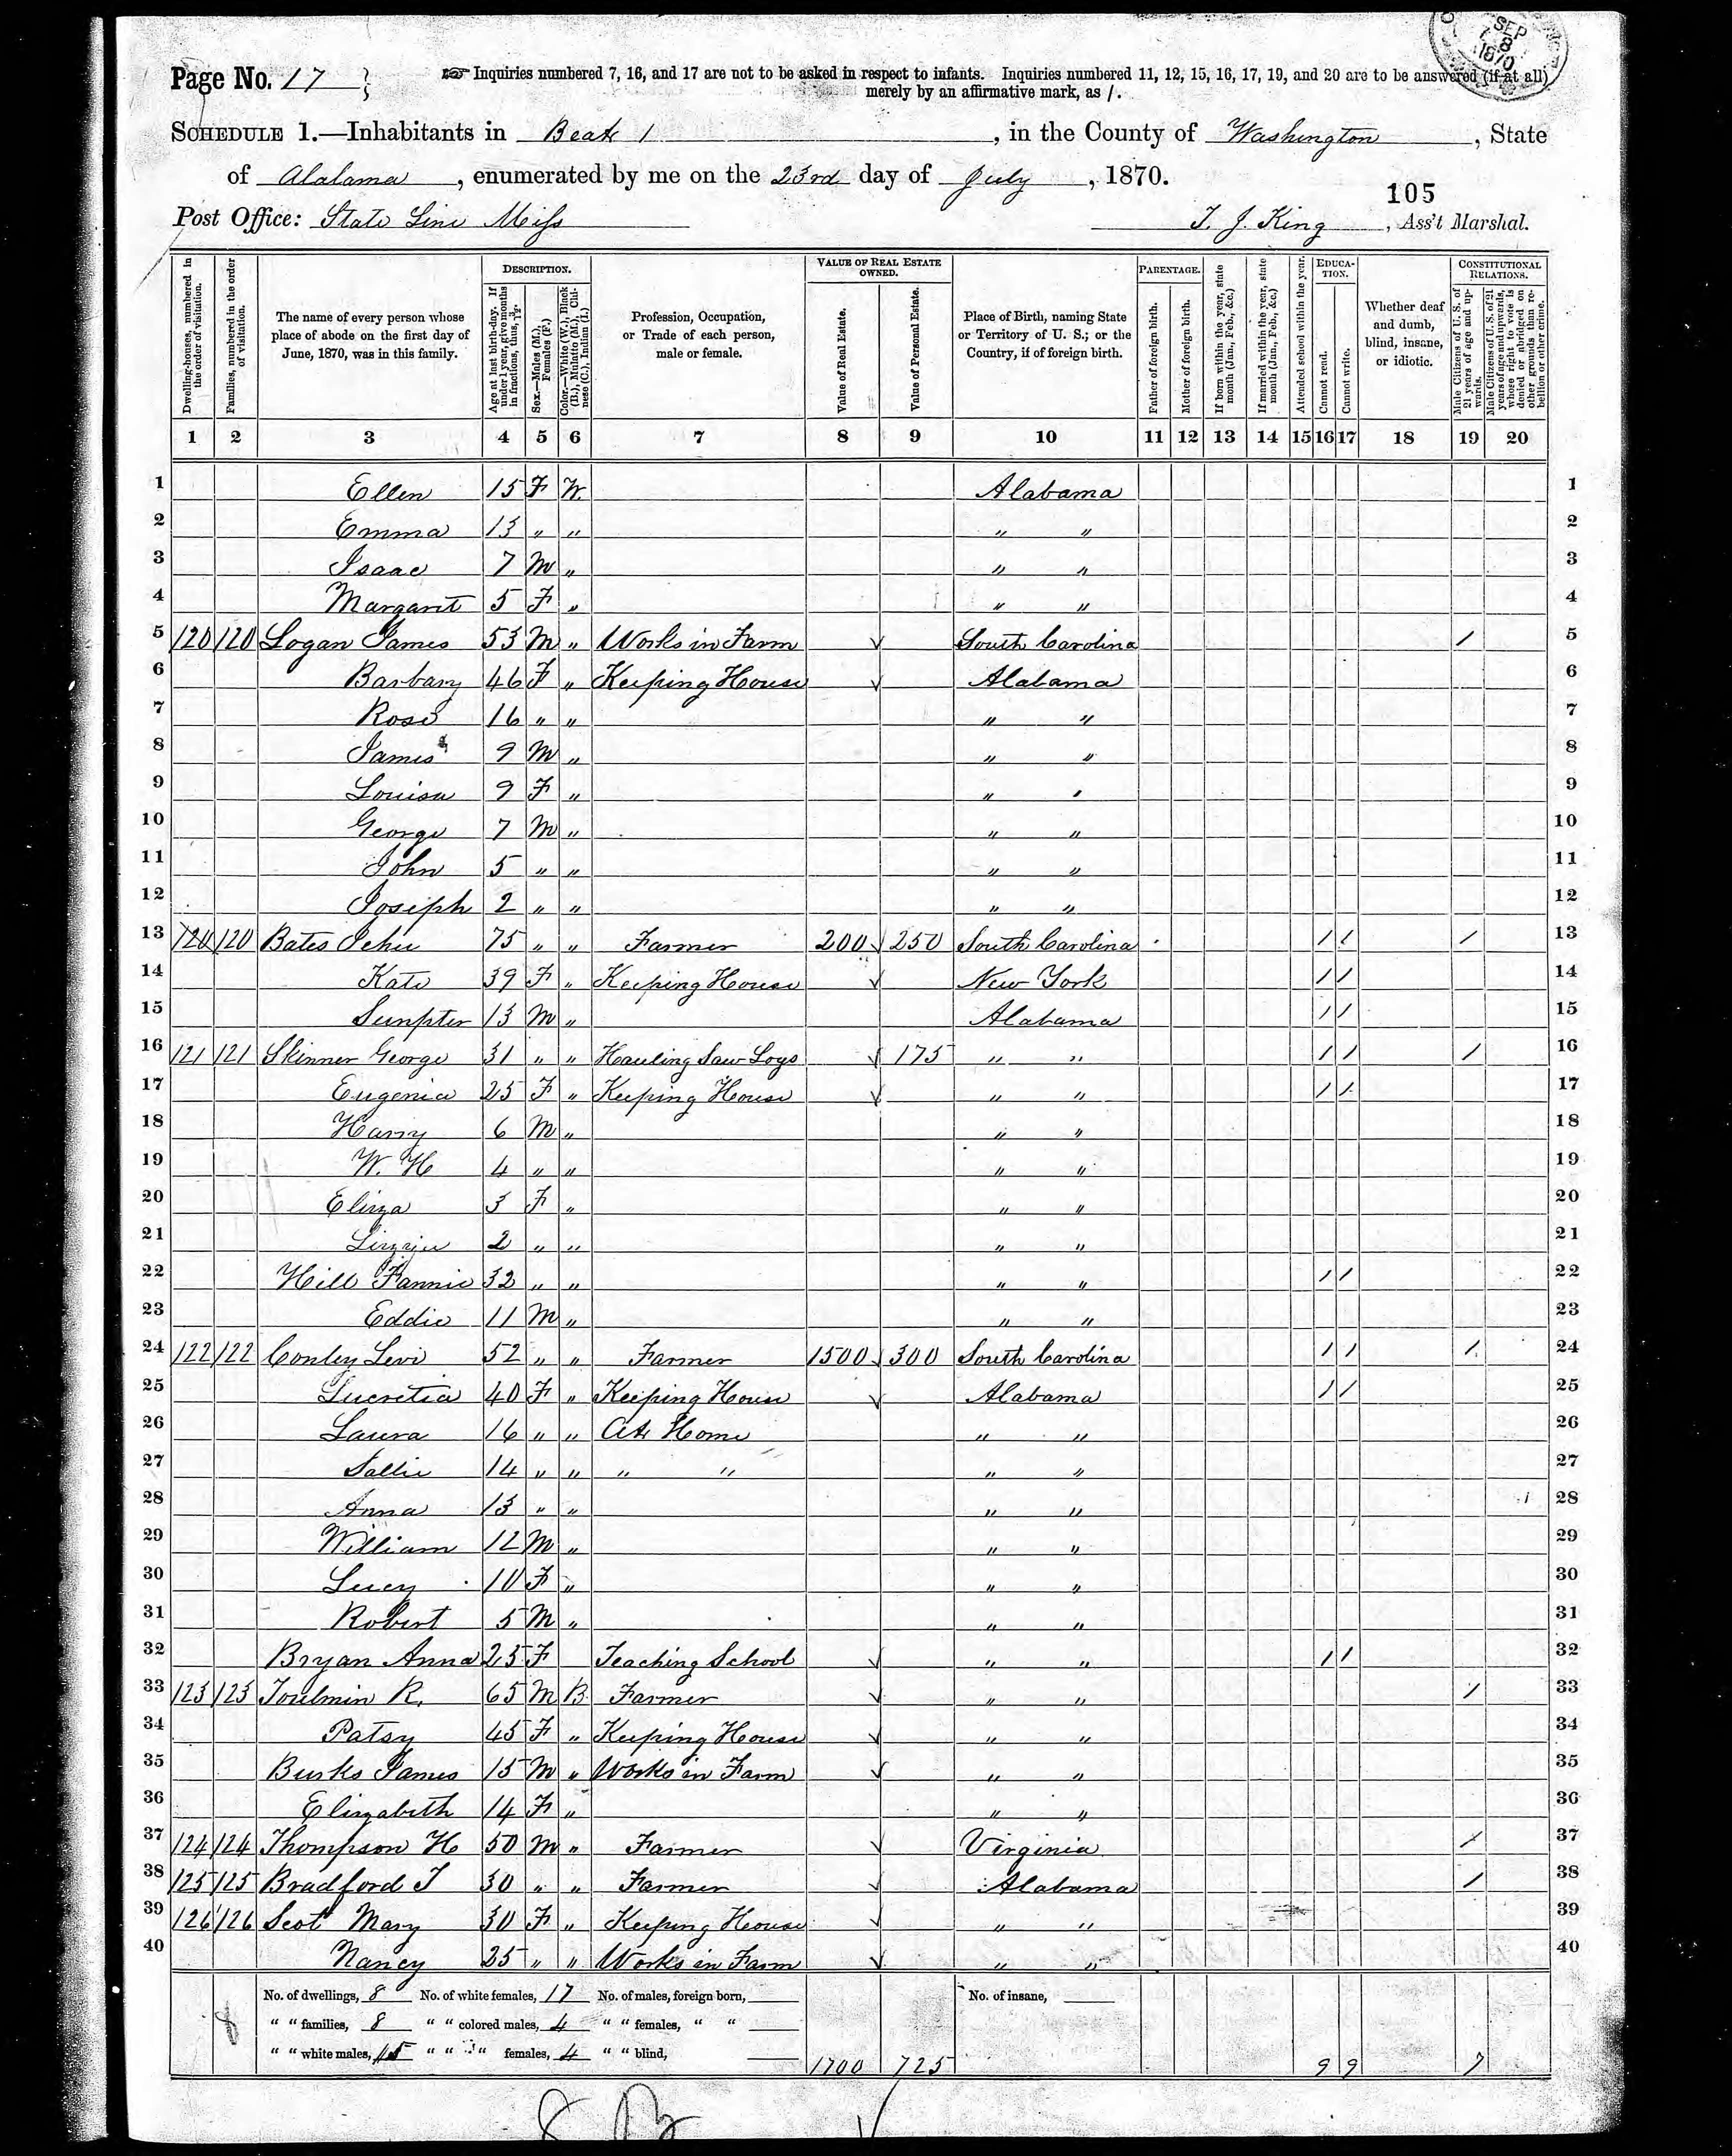 SEP 8 1870
Page No. 17 ☞ Inquiries numbered 7, 16, and 17 are not to be asked in respect to infants. Inquiries numbered 11, 12, 15, 16, 17, 19, and 20 are to be answered (if at all)
merely by an affirmative mark, as /.
SCHEDULE 1.—Inhabitants in Beat 1, in the County of Washington, State
of Alabama, enumerated by me on the 23rd day of July, 1870.
105
Post Office: State Line Miss T. J. King, Ass't Marshal.
Dwelling-houses, numbered in the order of visitation.
Families, numbered in the order of visitation.
The name of every person whose place of abode on the first day of June, 1870, was in this family.
DESCRIPTION.
Age at last birth-day. If under 1 year, give months in fractions, thus, 3/12.
Sex.—Males (M.), Females (F.)
Color.—White (W.), Black (B.), Mulatto (M.), Chinese (C.), Indian (I.)
Profession, Occupation, or Trade of each person, male or female.
VALUE OF REAL ESTATE OWNED.
Value of Real Estate.
Value of Personal Estate.
Place of Birth, naming State or Territory of U. S.; or the Country, if of foreign birth.
PARENTAGE.
Father of foreign birth.
Mother of foreign birth.
If born within the year, state month (Jan., Feb., &c.)
If married within the year, state month (Jan., Feb., &c.)
Attended school within the year.
EDUCATION.
Cannot read.
Cannot write.
Whether deaf and dumb, blind, insane, or idiotic.
CONSTITUTIONAL RELATIONS.
Male Citizens of U. S. of 21 years of age and upwards.
Male Citizens of U. S. of 21 years of age and upwards, whose right to vote is denied or abridged on other grounds than rebellion or other crime.
1 2 3 4 5 6 7 8 9 10 11 12 13 14 15 16 17 18 19 20
1 Ellen 15 F W. Alabama 1
2 Emma 13 " " " " 2
3 Isaac 7 M " " " 3
4 Margaret 5 F " " " 4
5 120 120 Logan James 53 M " Works in Farm ✓ South Carolina / 5
6 Barbary 46 F " Keeping House ✓ Alabama 6
7 Rose 16 " " " " 7
8 James 9 M " " " 8
9 Louisa 9 F " " " 9
10 George 7 M " " " 10
11 John 5 " " " " 11
12 Joseph 2 " " " " 12
13 120 120 Bates Jehu 75 " " Farmer 200 ✓ 250 South Carolina / / / 13
14 Kate 39 F " Keeping House ✓ New York / / 14
15 Sumpter 13 M " Alabama / / 15
16 121 121 Skinner George 31 " " Hauling Saw Logs ✓ 175 " " / / / 16
17 Eugenia 25 F " Keeping House ✓ " " / / 17
18 Harry 6 M " " " 18
19 W. H 4 " " " " 19
20 Eliza 3 F " " " 20
21 Lizzie 2 " " " " 21
22 Hill Fannie 32 " " " " / / 22
23 Eddie 11 M " " " 23
24 122 122 Conley Levi 52 " " Farmer 1500 ✓ 300 South Carolina / / / 24
25 Lucretia 40 F " Keeping House ✓ Alabama / / 25
26 Laura 16 " " At Home " " 26
27 Sallie 14 " " " " " " 27
28 Anna 13 " " " " 28
29 William 12 M " " " 29
30 Lucy 10 F " " " 30
31 Robert 5 M " " " 31
32 Bryan Anna 25 F Teaching School ✓ " " / / 32
33 123 123 Toulmin R. 65 M B. Farmer ✓ " " / 33
34 Patsy 45 F " Keeping House ✓ " " 34
35 Burks James 15 M " Works in Farm ✓ " " 35
36 Elizabeth 14 F " " " 36
37 124 124 Thompson H 50 M " Farmer ✓ Virginia / 37
38 125 125 Bradford T 30 " " Farmer ✓ Alabama / 38
39 126 126 Scot Mary 30 F " Keeping House ✓ " " 39
40 Nancy 25 " " Works in Farm ✓ " " 40
8 No. of dwellings, 8 No. of white females, 17 No. of males, foreign born, No. of insane,
" " families, 8 " " colored males, 4 " " females, " "
" " white males, 15 " " " females, 4 " " blind, 1700 725 9 9 7